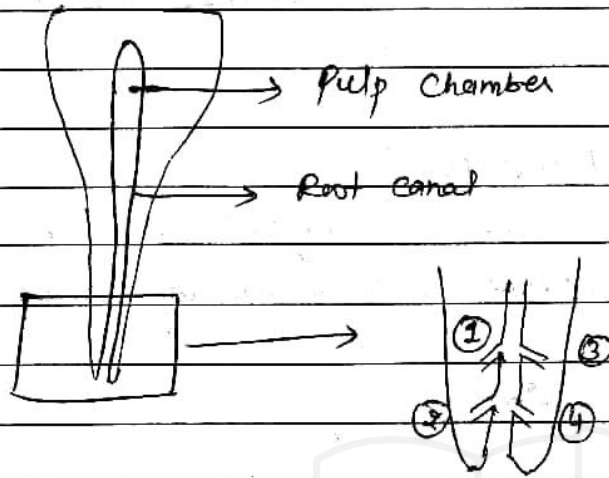 Pulp Chamber
Root canal
① ③
② ④